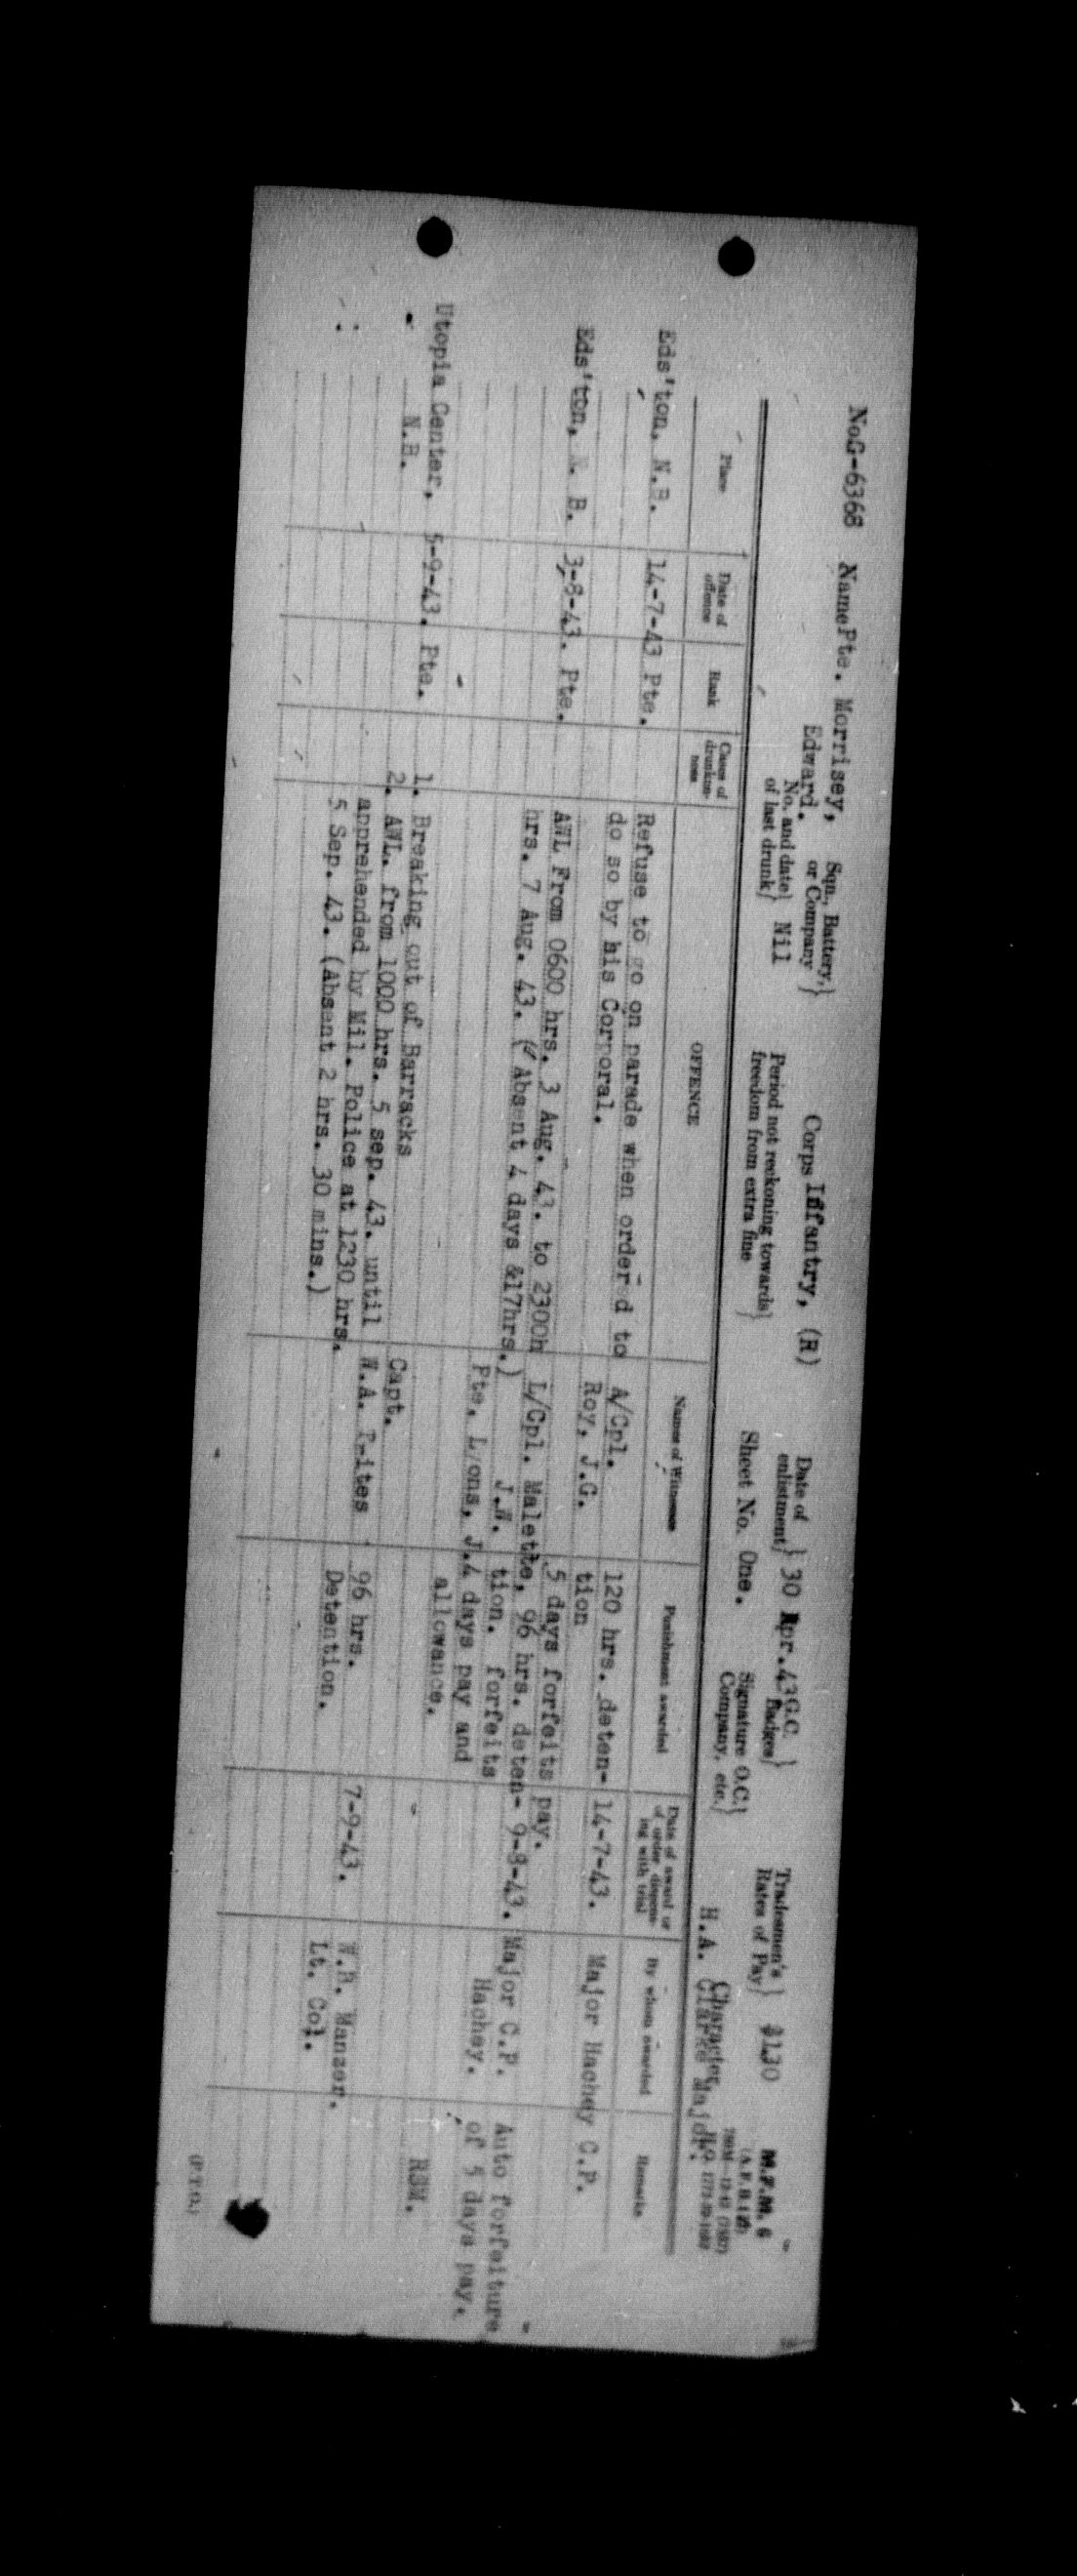 No G-6368 Name Pte. Morrisey, Edward. Sqn., Battery, or Company} Corps Infantry, (R) Date of enlistment} 30 Apr. 43 G.C. Badges} Tradesmen's Rates of Pay} $1.30 M.F.M. 6
No. and date of last drunk} Nil Period not reckoning towards freedom from extra fine} Sheet No. One. Signature O.C. Company, etc.} H.A. Clarke Major. Character
Place Date of offence Rank Cases of drunkenness OFFENCE Names of Witnesses Punishment awarded Date of award or of order dispensing with trial By whom awarded Remarks
Eds'ton, N.B. 14-7-43 Pte. Refuse to go on parade when order d to A/Cpl. 120 hrs. deten- 14-7-43. Major Hachey C.P.
do so by his Corporal. Roy, J.G. tion
5 days forfeits pay.
Eds'ton, N. B. 3-8-43. Pte. AWL From 0600 hrs. 3 Aug. 43. to 2300h L/Cpl. Malette, 96 hrs. deten- 9-8-43. Major C.P. Auto forfeiture
hrs. 7 Aug. 43. ( Absent 4 days &17hrs.) J.W. tion. forfeits Hachey. of 5 days pay.
Pte. Lyons, J. 4 days pay and
allowance.
Utopia Center, 5-9-43. Pte. 1. Breaking out of Barracks Capt. RSM.
N.B. 2. AWL. from 1000 hrs. 5 sep. 43. until W.A. 96 hrs. 7-9-43. W.R. Manzer.
apprehended by Mil. Police at 1230 hrs. Detention. Lt. Col.
5 Sep. 43. (Absent 2 hrs. 30 mins.)
(P.T.O.)